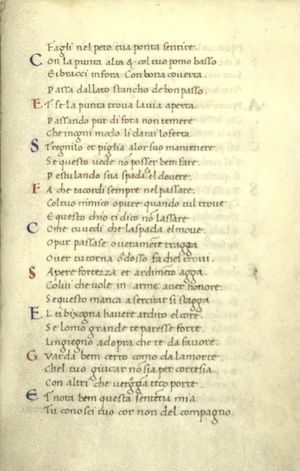 Fagli nel peto tua ponta sentire.
Con la punta alta & col tuo pomo basso
Et bracci in fora Con bona coverta.
Passa dal lato stancho de bon passo.
Et se la punta trova la via aperta.
Passando pur di fora non temere
Che in ogni modo li darai lofferta
Stregnilo et piglia alor suo mantenere
Se questo vede no posser ben fare.
Pestulando sua spada el dovere.
Fa che tacordi sempre nel passare.
Col tuo nimico opure quando tul trove
E questo chio ti dico no lassare
Come tu vedi che la spada el move.
Opur passase overamente tragga
Over tu torna o dosso fa chel trovi.
Sapere fortezza et ardimeto agga
Colui che vole in arme aver honore.
Se questo manca a sercitar si stagga
El ti bixogna havere ardito el core.
Se lomo grande te paresse forte.
Lingiegno adopra che te da favore.
Guarda ben certo como da la morte.
Chel tuo guicar nó sia per cortesia
Con altri che vergogna teco porte
Et nota ben questa sententia mia
Tu conosci tuo cor non del compagno